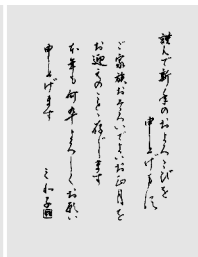 謹んで新年のおよろこびを
申し上げます
ご家族おそろいでよいお正月を
お迎えのことと存じます
本年も何卒よろしくお願い
申し上げます